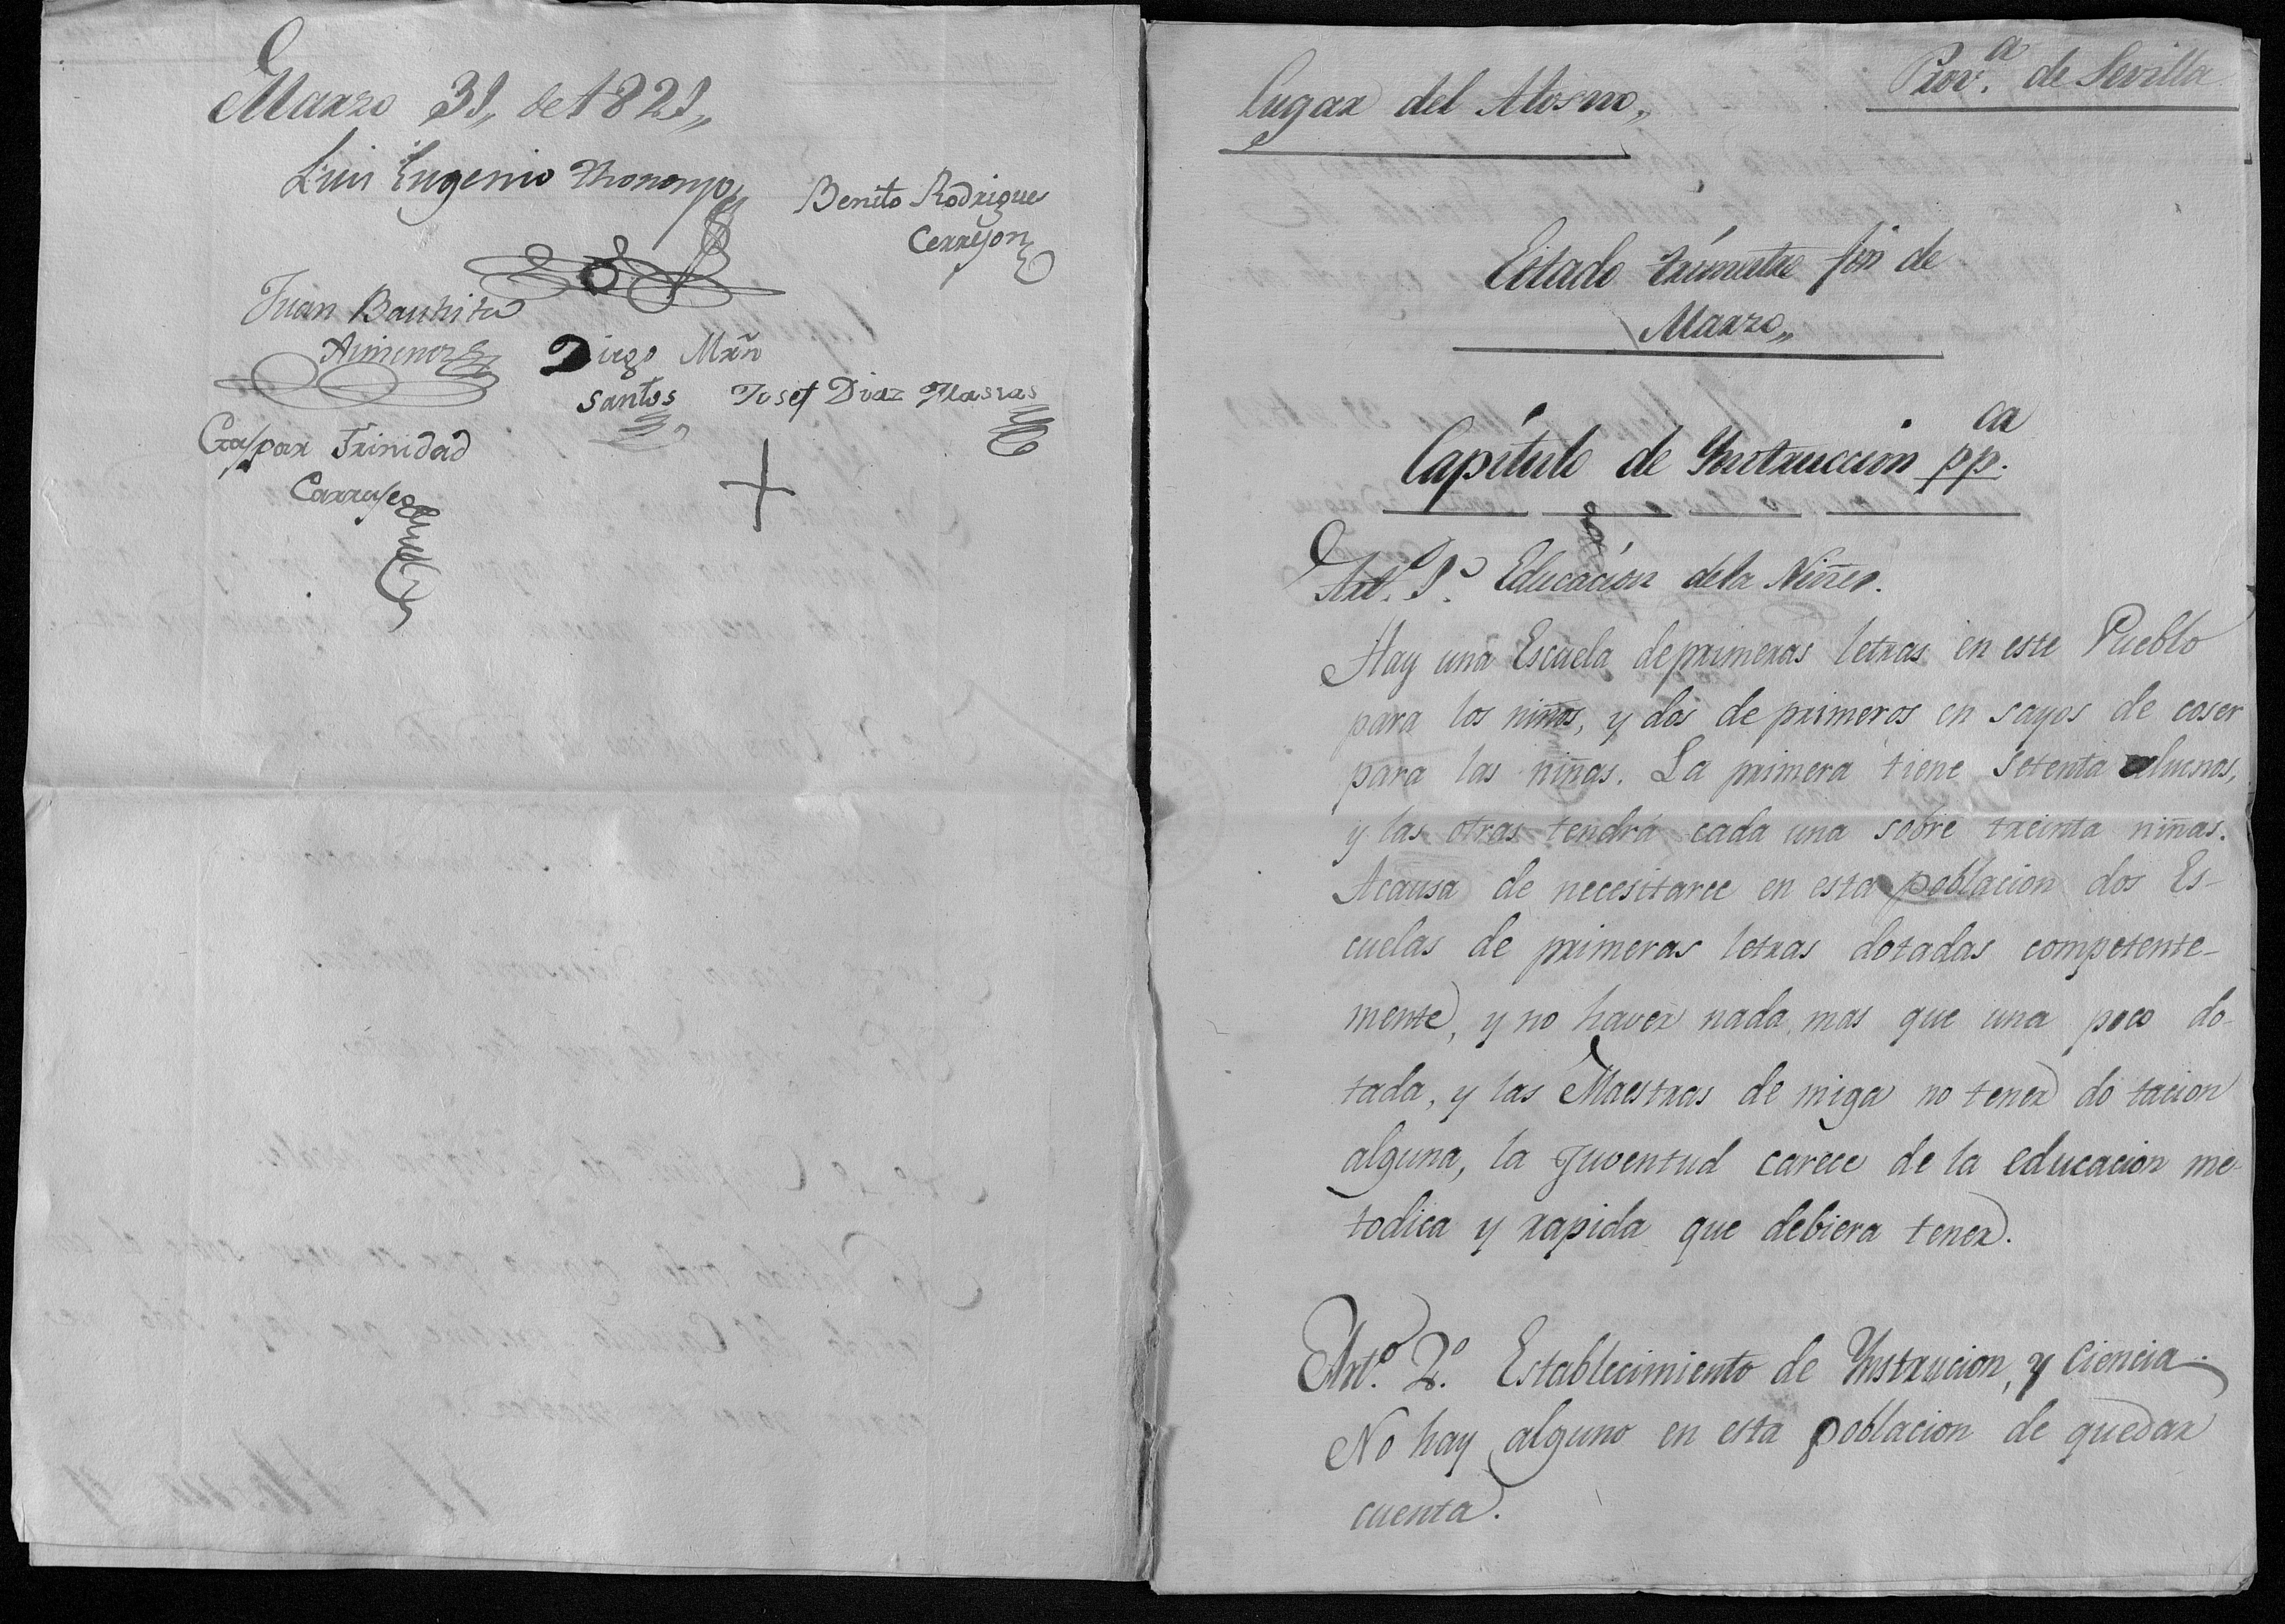 Marzo 31,, de 1821,,
Luis Eugenio
Benito Rodrigue
Cerrejon
Juan Bautista
Ximenez
Diego Mrñ
Santos
Josef Diaz Masias
Gaspar Trinidad
Carrasco
Lugar del Alosno,,
Prov.ª de Sevilla
Estado trimestre fin de
Marzo,,
Capitulo de Ynstruccion pp.ca
Art.º 1.º Educacion dela Niñez.
Hay una Escuela deprimeras letras en este Pueblo
para los niños, y dos de primeros en sayos de coser
para las niñas. La primera tiene setenta alumnos,
y las otras tendrá cada una sobre treinta niñas.
Acausa de necesitarce en esta poblacion dos Es-
cuelas de primeras letras dotadas competente-
mente, y no haver nada mas que una poco do-
tada, y las Maestras de miga no tener do tacion
alguna, la Juventud carece de la educacion me-
todica y rapida que debiera tener.
Art.º 2.º Establecimiento de Ynstrucion, y Ciencia.
No hay alguno en esta poblacion de quedar
cuenta.